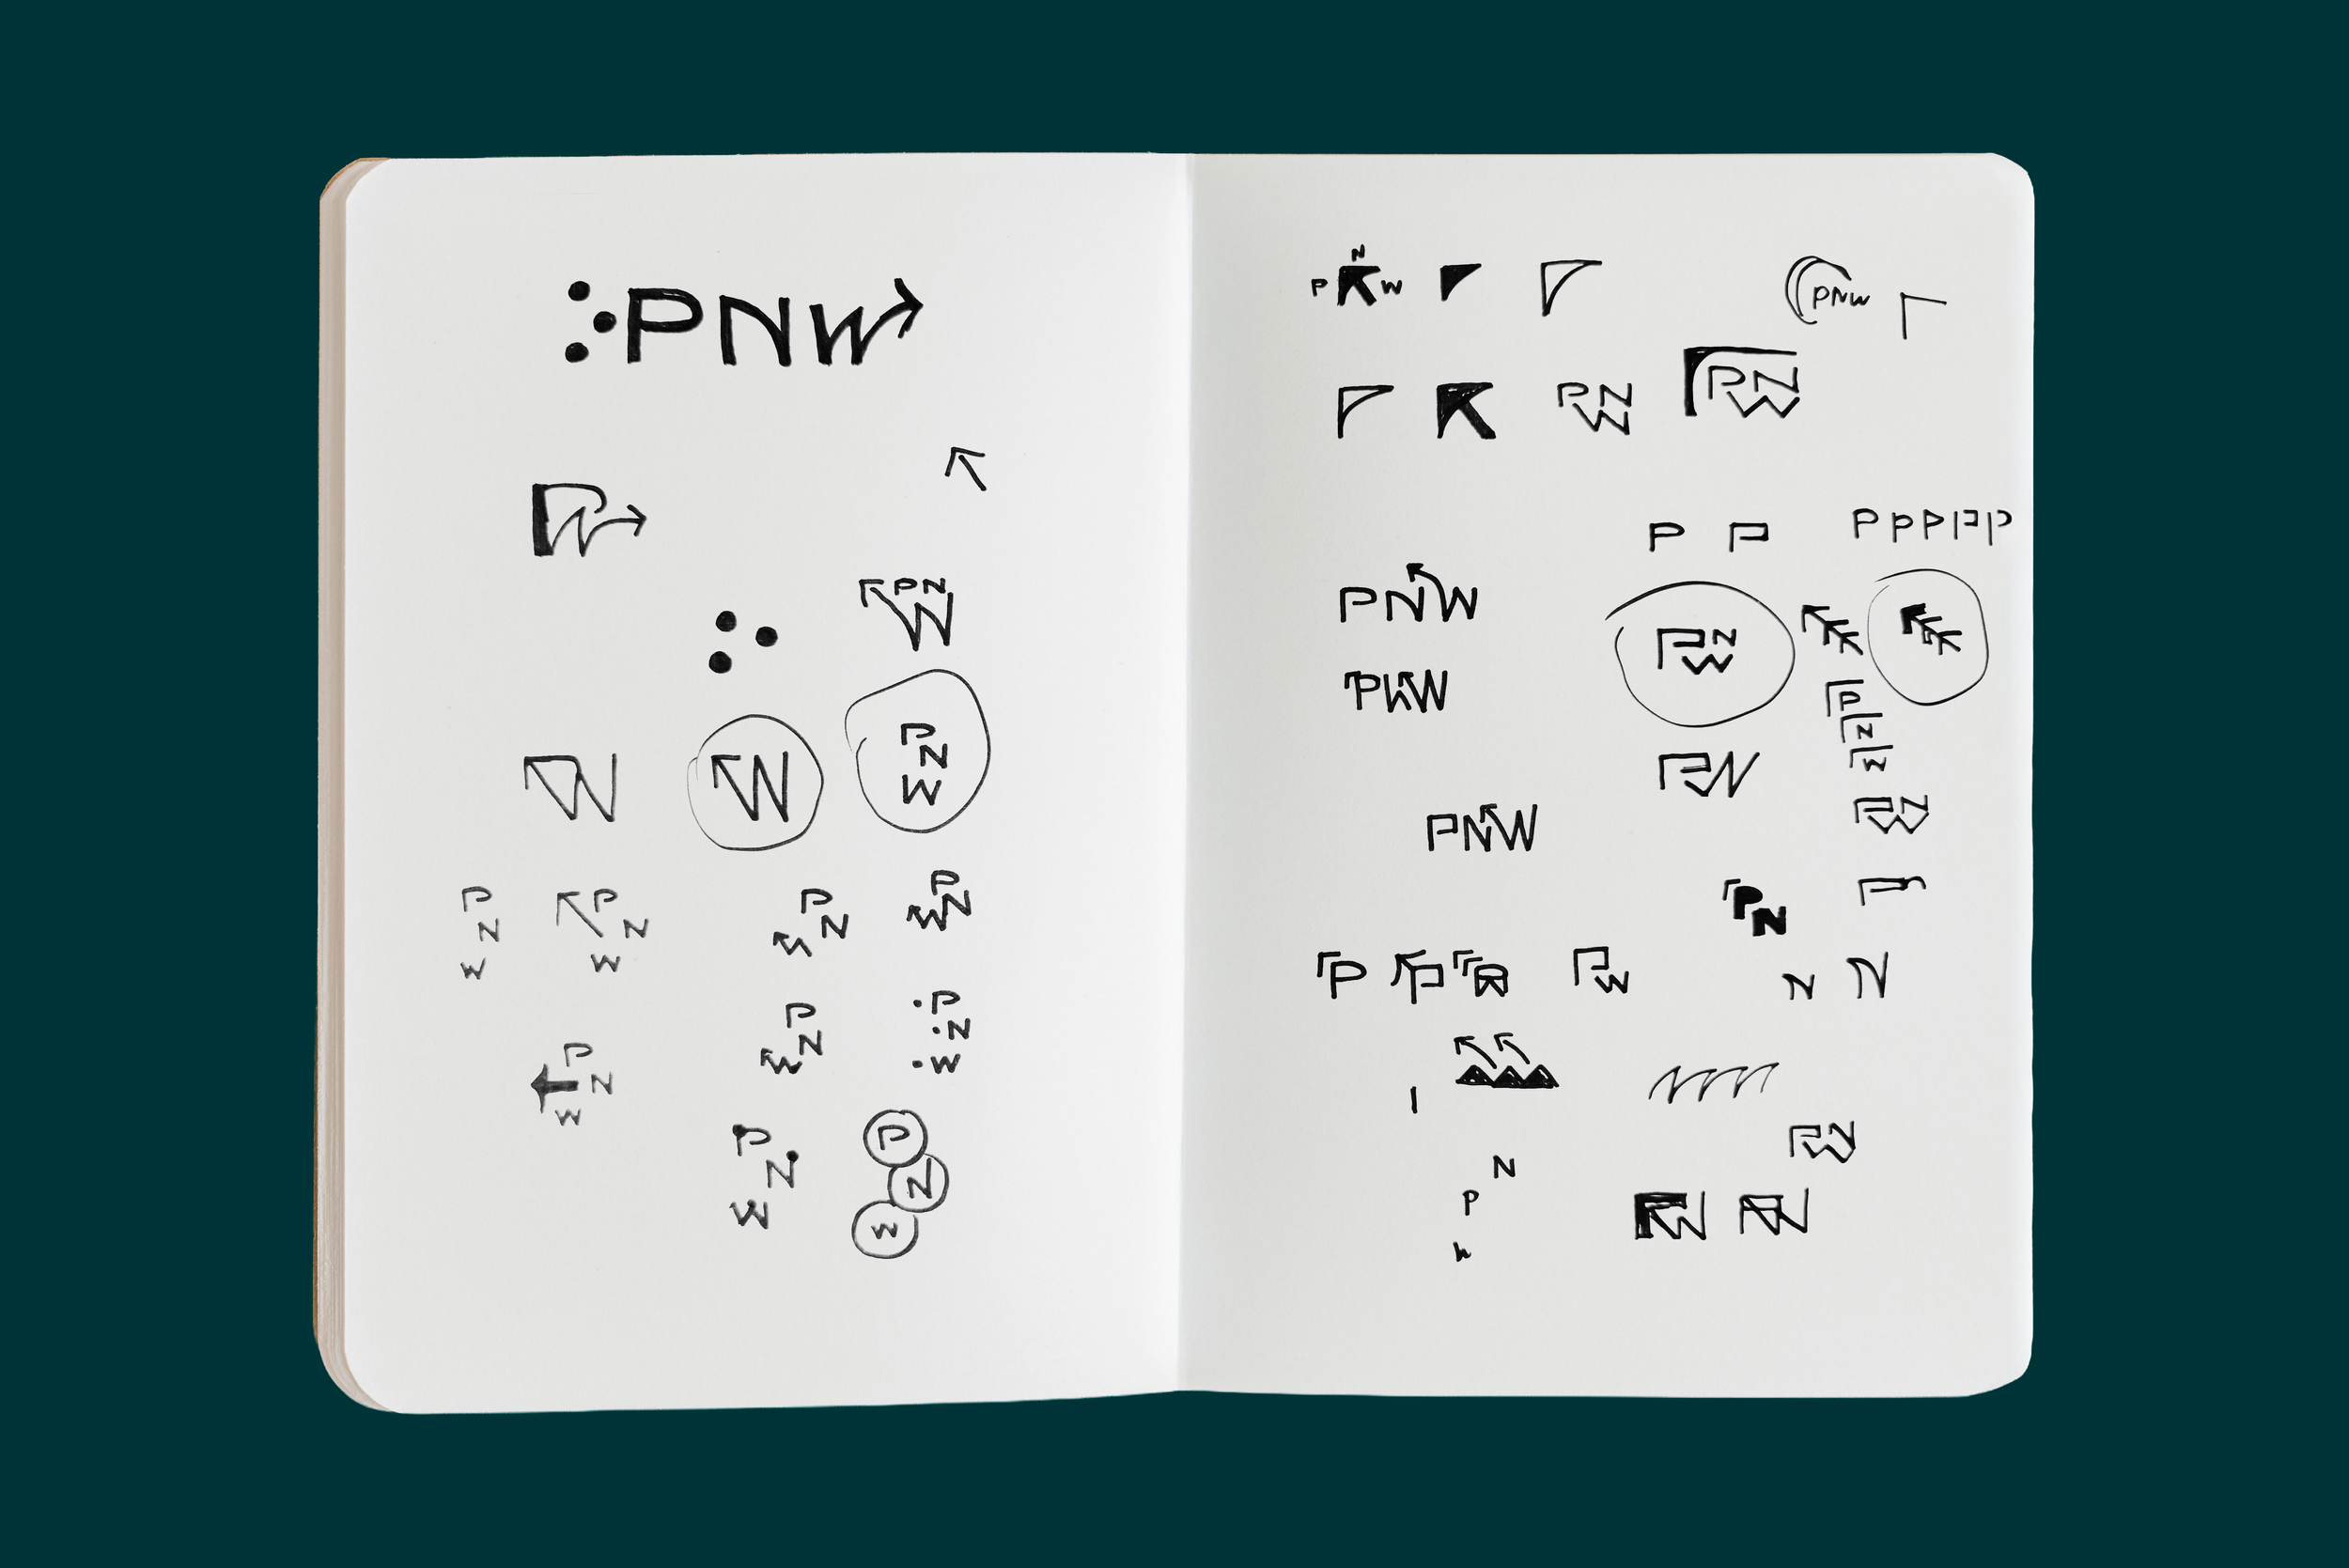 PNW
PW
PN
W
W
W
P
N
W
P
N
W
P
N
W
P
N
W
P
N
W
P
N
W
P
N
W
P
N
W
P
N
W
P
N
W
P
N
W
N
P W
PNW
PN
W
PN
W
P P
P P P P P
PNW
PN
W
PNW
P
N
W
PNW
PN
W
PN
P
PW
N N
PN
W
N
P